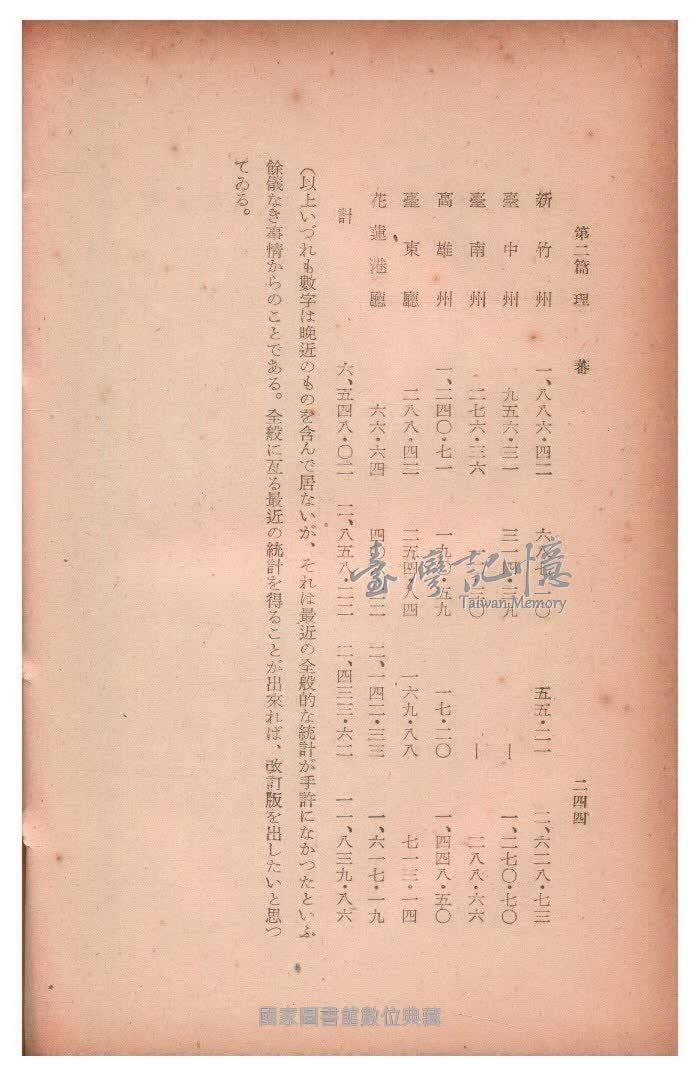 第二篇 理 蕃 二四四
新竹州 一、八八六・四二 六八七・一〇 五五・二一 二、六二八・七三
臺中州 九五六・三一 三一四・三九 ― 一、二七〇・七〇
臺南州 二七六・三六 ― 二八八・六六
高雄州 一、二四〇・七一 一七・二〇 一、四四八・五〇
臺東廳 二八八・四二 二五四・八四 一六九・八八 七一三・一四
花蓮港廳 六六・六四 二、一四二・三三 一、六一七・一九
計 六、五四八・〇二 二、八五八・二二 二、四三三・六二 一一、八三九・八六
(以上いづれも數字は晩近のものを含んで居ないが、それは最近の全般的な統計が手許になかつたといふ
餘儀なき事情からのことである。全般に亙る最近の統計を得ることが出來れば、改訂版を出したいと思つ
てゐる。
臺灣記憶
Taiwan Memory
國家圖書館數位典藏